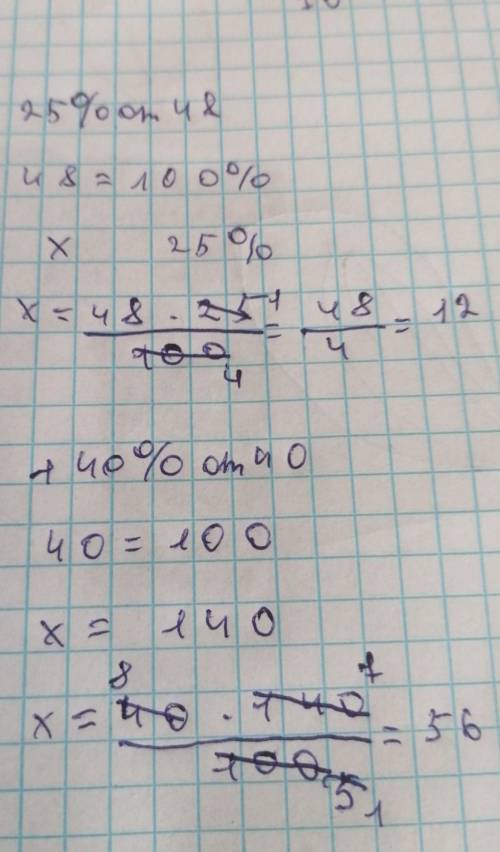 25% от 48
48 = 100%
x 25%
x = 48 · 25 1 / 100 4 = 48 / 4 = 12
140% от 40
40 = 100
x = 140
x = 8 40 · 140 7 / 100 5 1 = 56